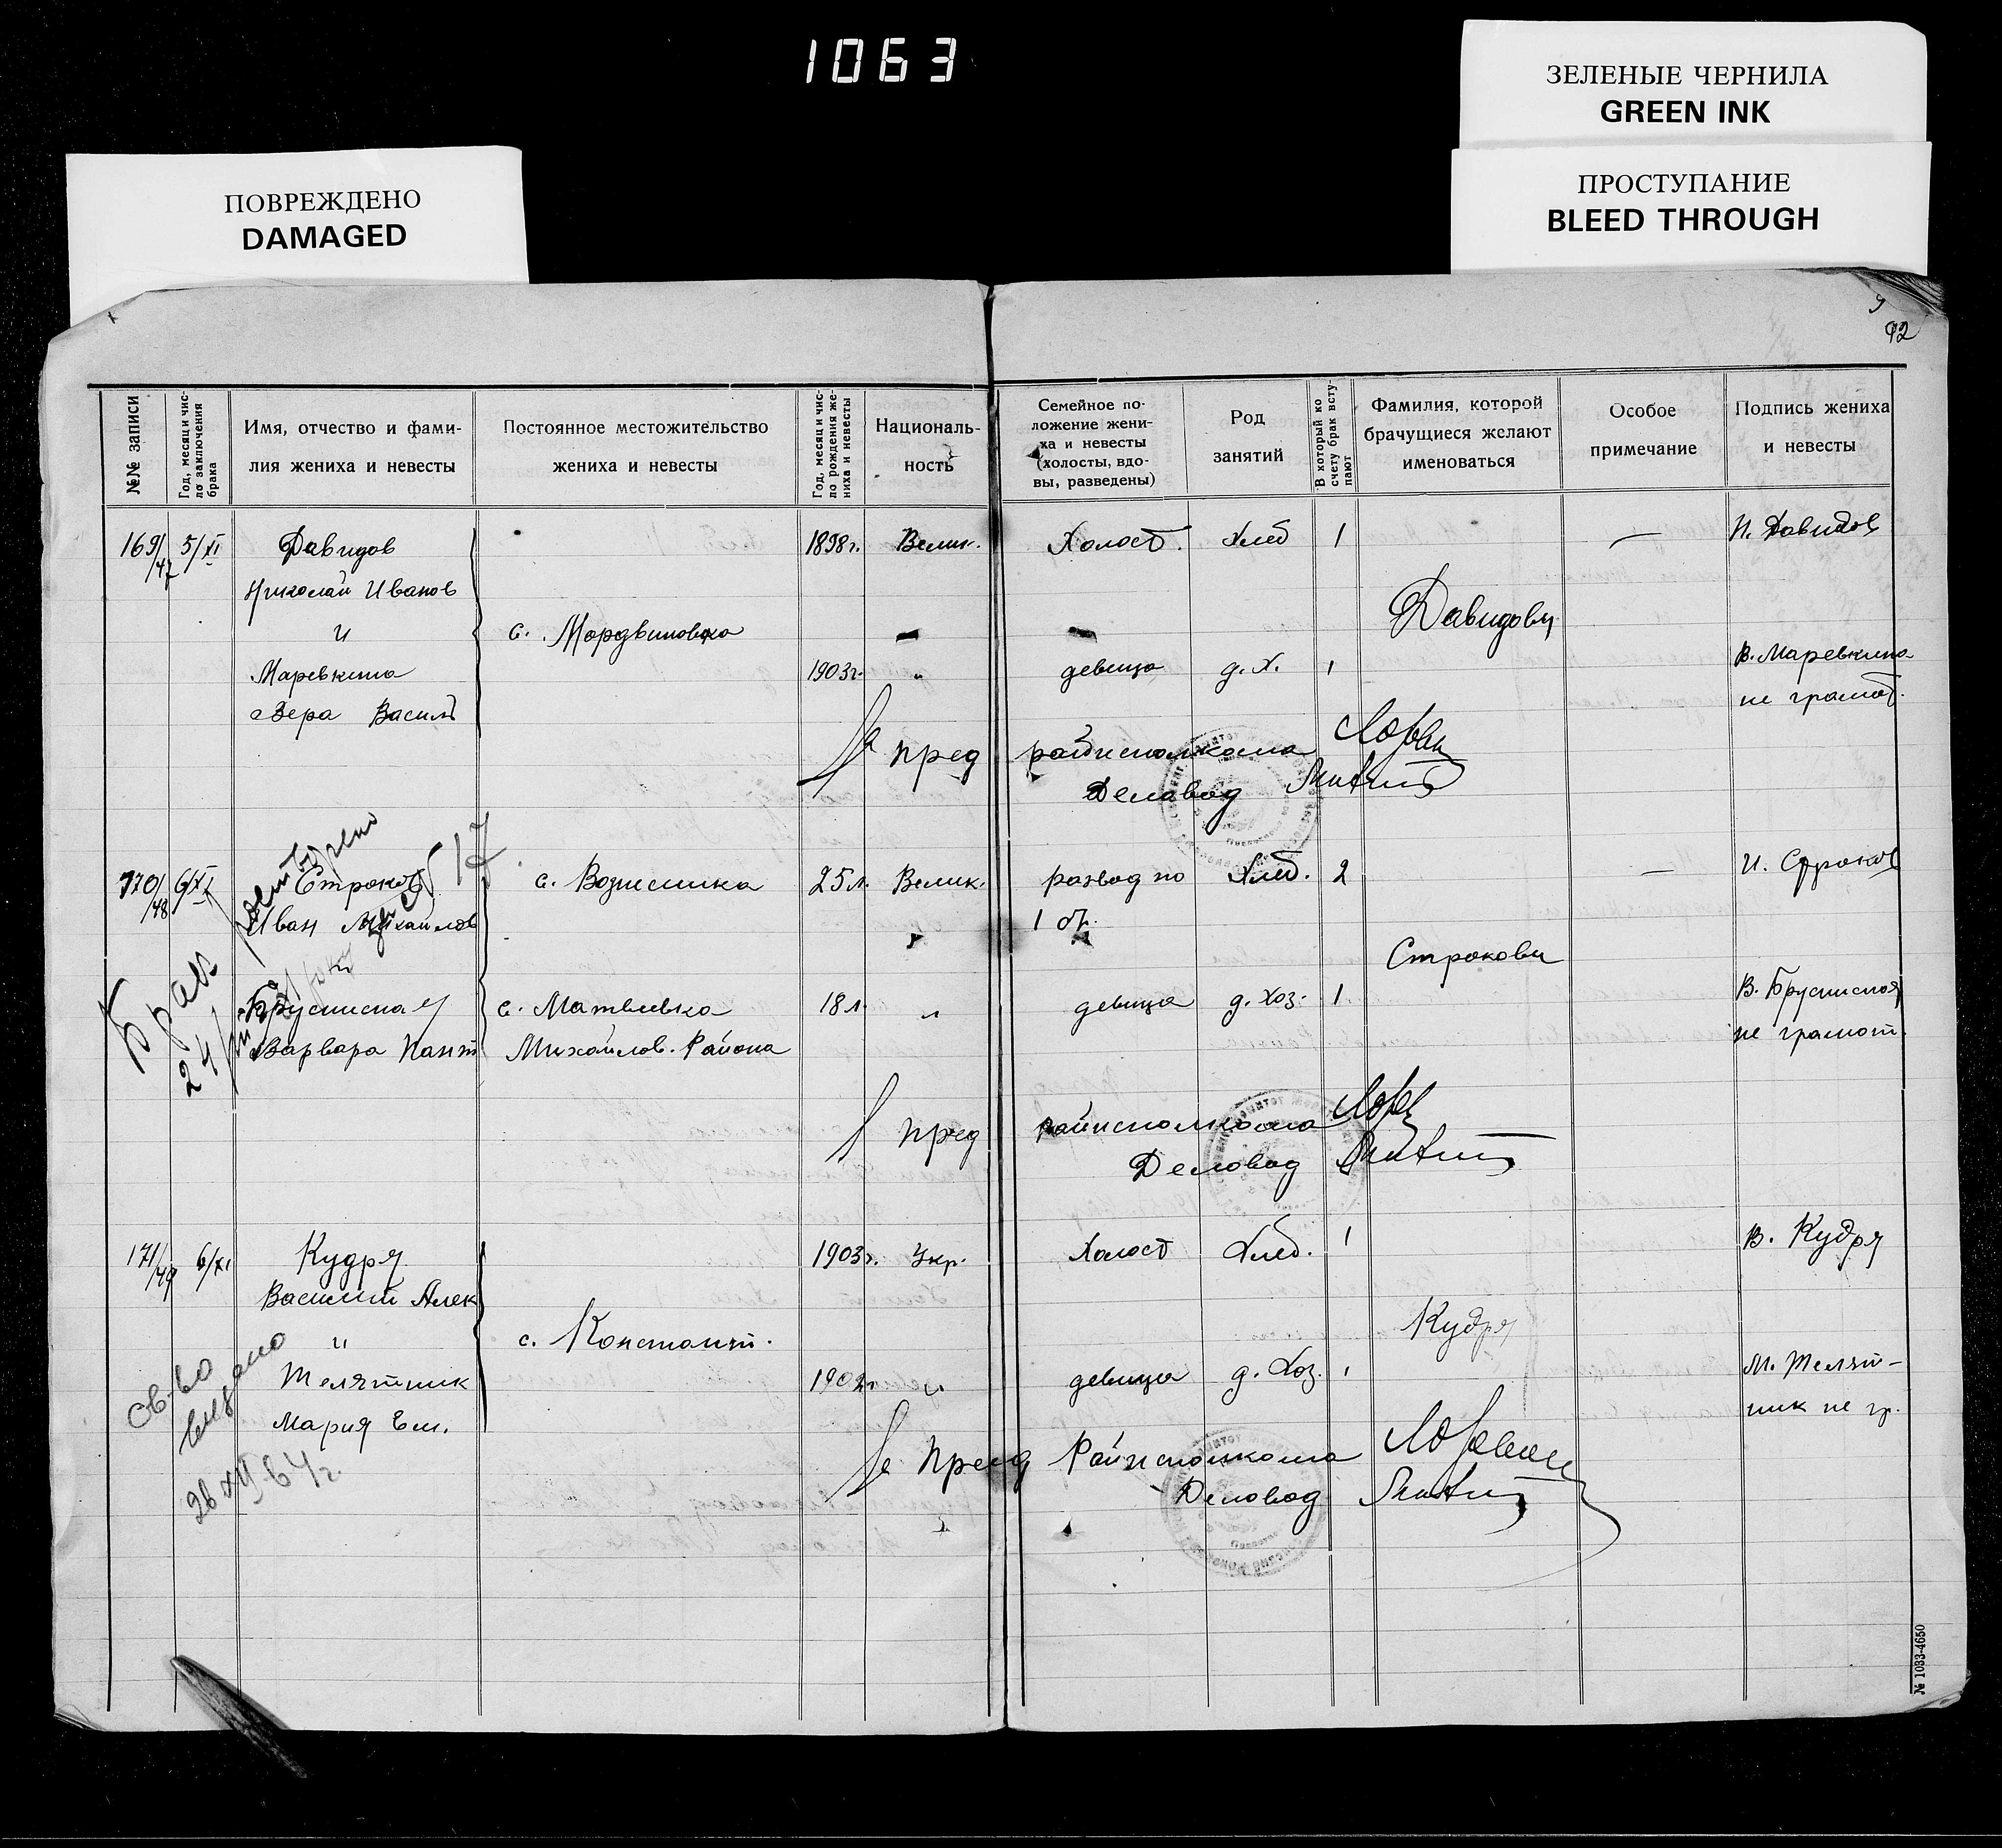 1063
ЗЕЛЕНЫЕ ЧЕРНИЛА
GREEN INK
ПРОСТУПАНИЕ
BLEED THROUGH
ПОВРЕЖДЕНО
DAMAGED
92
№№ записи
Год, месяц и чис-
ло заключения
брака
Имя, отчество и фами-
лия жениха и невесты
Постоянное местожительство
жениха и невесты
Год, месяц и чис-
ло рождения же-
ниха и невесты
Националь-
ность
Семейное по-
ложение жени-
ха и невесты
(холосты, вдо-
вы, разведены)
Род
занятий
В который ко
счету брак всту-
пают
Фамилия, которой
брачущиеся желают
именоваться
Особое
примечание
Подпись жениха
и невесты
169/47 5/XI Давидов 1898г. Велик. Холост. Хлеб 1 — Н. Давидов
Николай Иванов
и с. Мордвиновка Давидовы
Маревкина 1903г. " девица д. х. 1 В. Маревкина
Вера Василь не грамот.
пред райисполкома
Деловод
170/48 6/XI Строков с. Вознесенка 25 л. Велик. развод по Хлеб. 2 — И. Строков
Иван Михайлов 1 от.
и Строковы
Варвара Пант с. Матвеевка 18 л " девица д. хоз. 1
Михайлов. Района не грамот.
Брак
24
пред райисполкома
Деловод
171/49 6/XI Кудря 1903г. Укр. Холост Хлеб. 1 В. Кудря
Василий Алек
и с. Констант. Кудря
Телятник " девица д. Хоз. 1 М. Телят-
Мария Ем. ник не гр.
св-во
выдано
26 XII 64 г
Пред Райисполкома
Деловод
№ 1033-4650